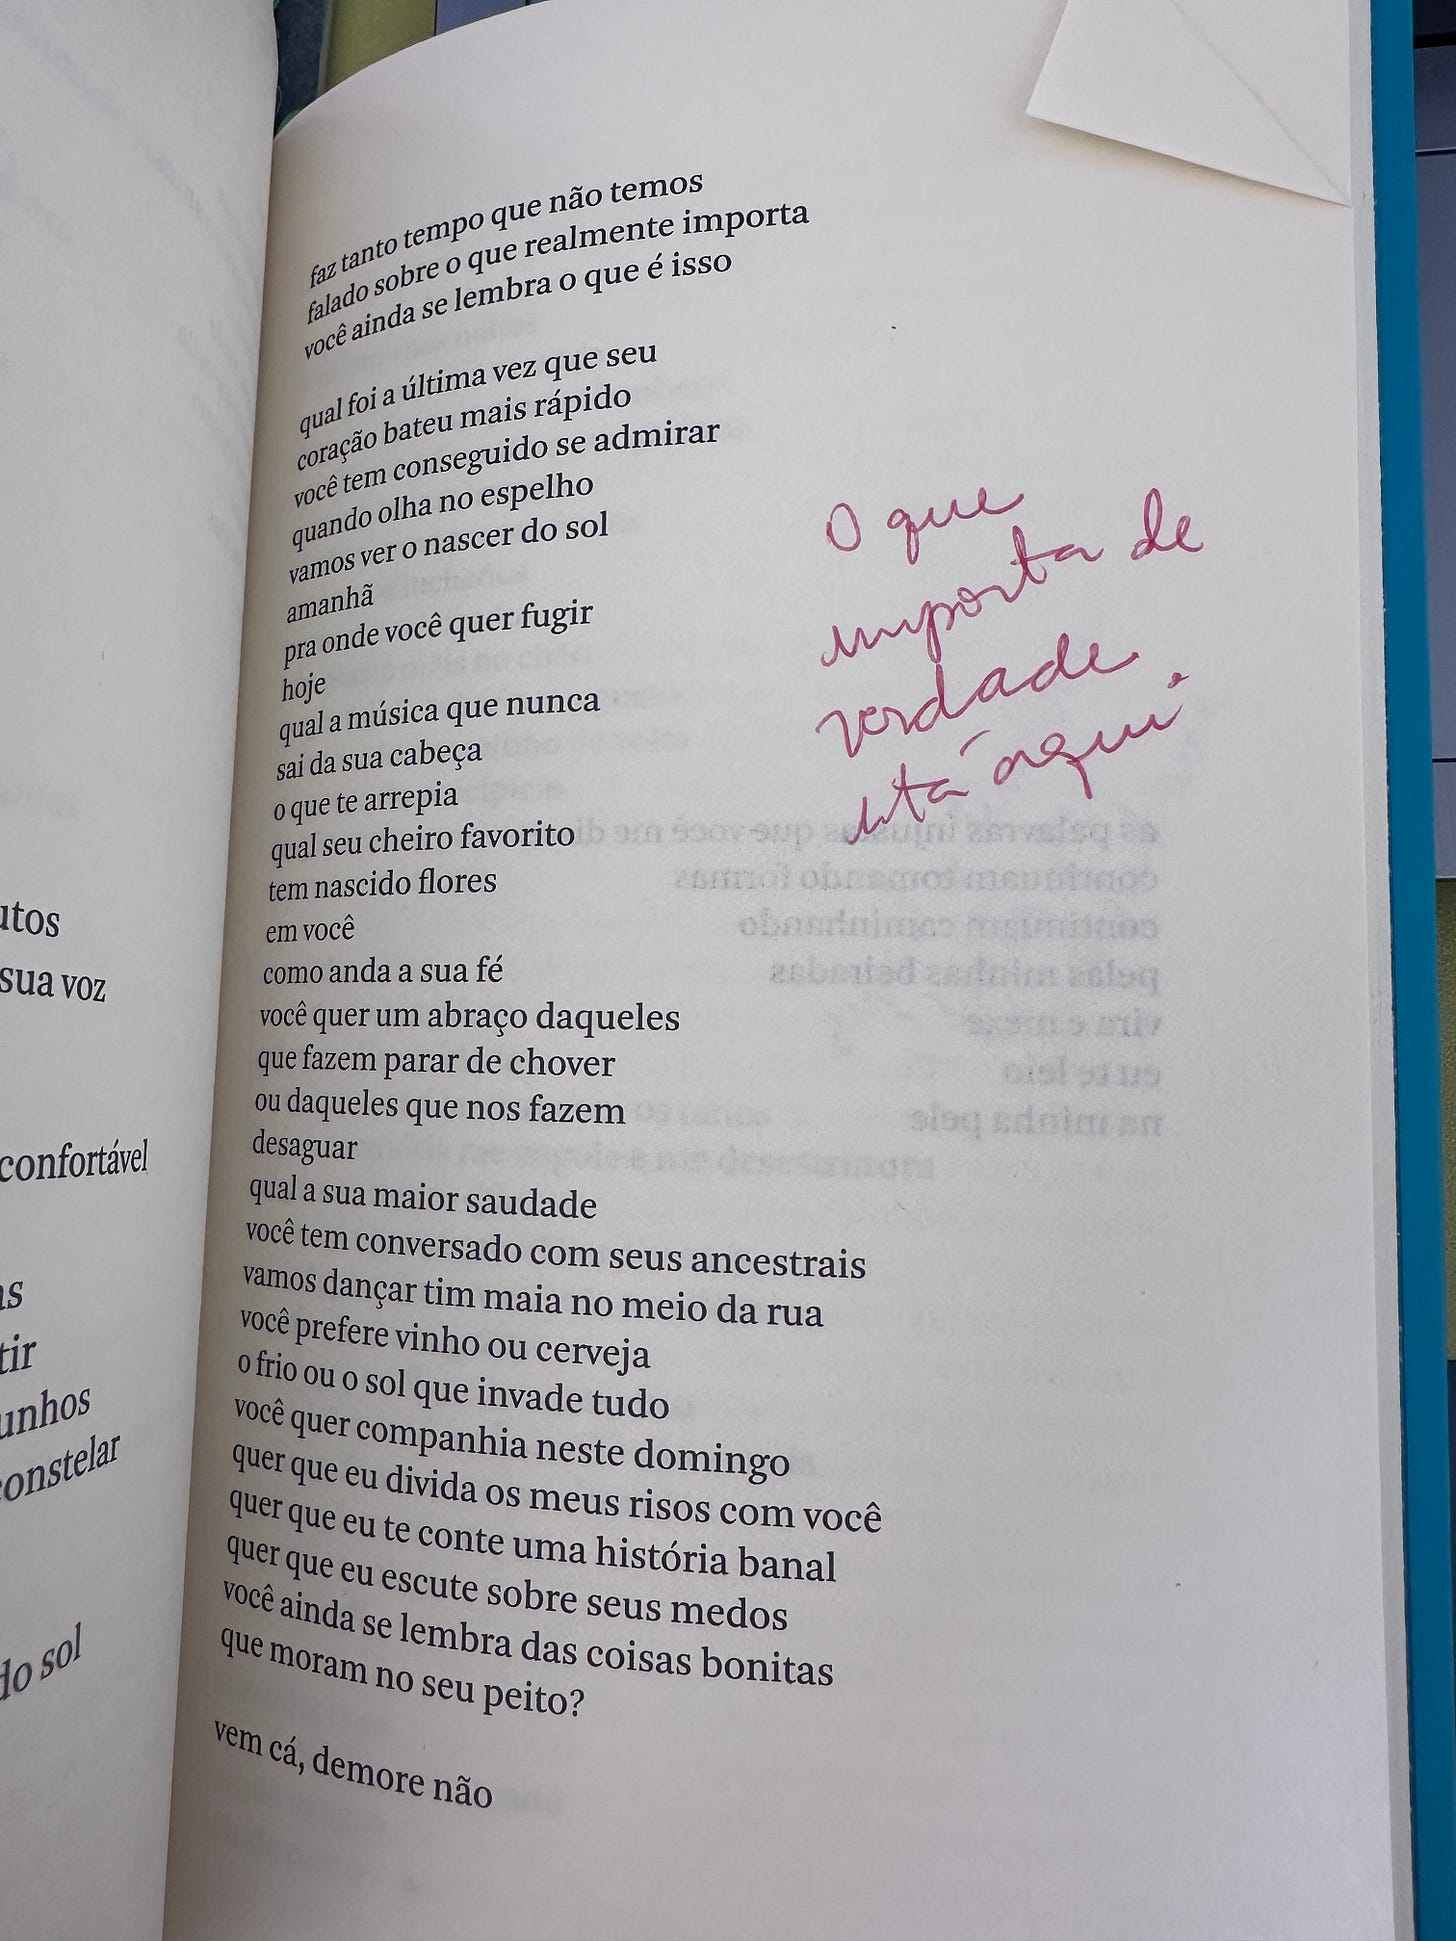 faz tanto tempo que não temos
falado sobre o que realmente importa
você ainda se lembra o que é isso
qual foi a última vez que seu
coração bateu mais rápido
você tem conseguido se admirar
quando olha no espelho
vamos ver o nascer do sol
amanhã
pra onde você quer fugir
hoje
qual a música que nunca
sai da sua cabeça
o que te arrepia
qual seu cheiro favorito
tem nascido flores
em você
como anda a sua fé
você quer um abraço daqueles
que fazem parar de chover
ou daqueles que nos fazem
desaguar
qual a sua maior saudade
você tem conversado com seus ancestrais
vamos dançar tim maia no meio da rua
você prefere vinho ou cerveja
o frio ou o sol que invade tudo
você quer companhia neste domingo
quer que eu divida os meus risos com você
quer que eu te conte uma história banal
quer que eu escute sobre seus medos
você ainda se lembra das coisas bonitas
que moram no seu peito?
vem cá, demore não
O que
importa de
verdade
está aqui.
sua voz
confortável
sol